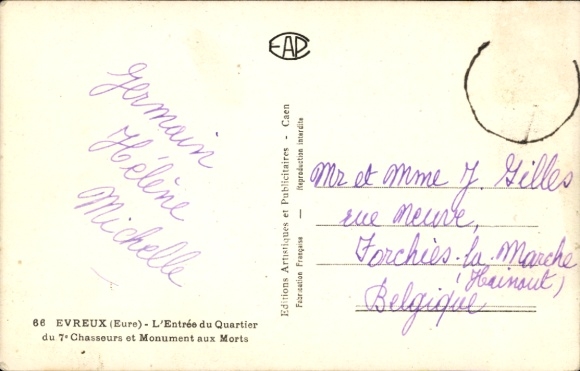 EAP
Germain
Hélène
Michelle
66 EVREUX (Eure) - L'Entrée du Quartier
du 7e Chasseurs et Monument aux Morts
Editions Artistiques et Publicitaires - Caen
Fabrication Française — Reproduction interdite
Mr et Mme J. Gilles
rue Neuve,
Forchies-la-Marche
(Hainaut)
Belgique